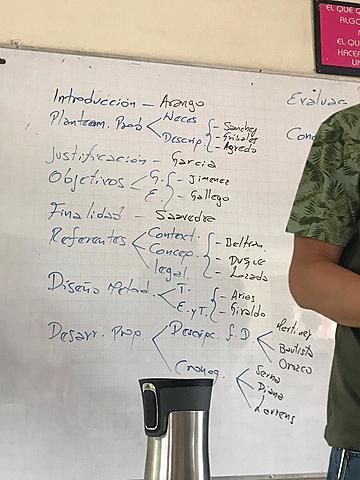 EL QUE Q
ALGO
EL QU
HACER
UN
Introducción - Arango
Planteam. Prob
Neces
Descrip
- Sanchez
- Grisales
- Agredo
Justificación - Garcia
Objetivos
G.
E.
- Jimenez
- Gallego
Finalidad - Saavedra
Referentes
Context.
Concep.
legal.
- Beltran
- Duque
- Lozada
Diseño Metod.
T.
E. y T.
- Arias
- Giraldo
Desarr. Prop.
Descripc. f. D.
Martinez
Bautista
Orozco
Cronog.
Serna
Diana
Lorens
Evaluac
Conc